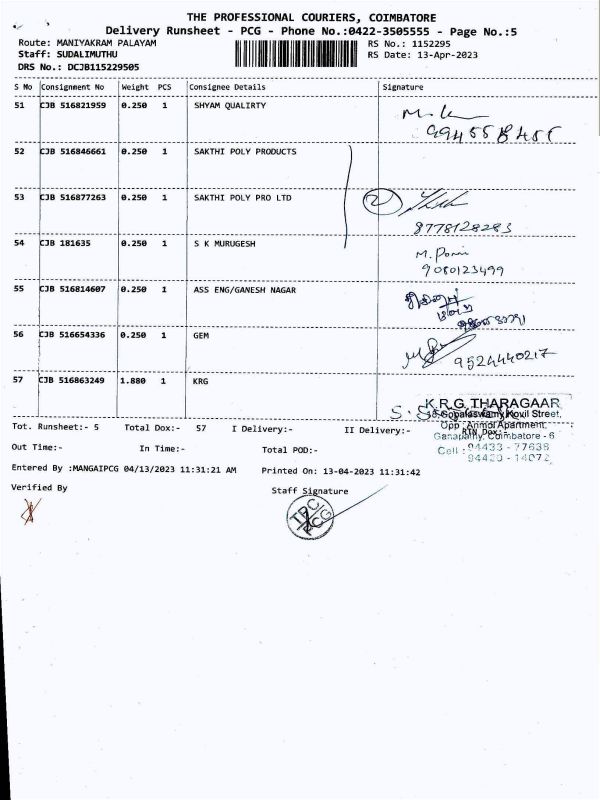 THE PROFESSIONAL COURIERS, COIMBATORE
Delivery Runsheet - PCG - Phone No.:0422-3505555 - Page No.:5
Route: MANIYAKRAM PALAYAM RS No.: 1152295
Staff: SUDALIMUTHU RS Date: 13-Apr-2023
DRS No.: DCJB115229505
S No Consignment No Weight PCS Consignee Details Signature
51 CJB 516821959 0.250 1 SHYAM QUALIRTY
52 CJB 516846661 0.250 1 SAKTHI POLY PRODUCTS
53 CJB 516877263 0.250 1 SAKTHI POLY PRO LTD 2
8778128283
54 CJB 181635 0.250 1 S K MURUGESH M. Pomi
9080123499
55 CJB 516814607 0.250 1 ASS ENG/GANESH NAGAR
56 CJB 516654336 0.250 1 GEM
9524440217
57 CJB 516863249 1.880 1 KRG
K.R.G. THARAGAAR
18, Gopalaswamy Kovil Street,
Opp. Anmol Apartment,
Ganapathy, Coimbatore - 6
Cell : 94433 - 77636
94420 - 14072
Tot. Runsheet:- 5 Total Dox:- 57 I Delivery:- II Delivery:- RTN Dox:-
Out Time:- In Time:- Total POD:-
Entered By :MANGAIPCG 04/13/2023 11:31:21 AM Printed On: 13-04-2023 11:31:42
Verified By Staff Signature
TPC/
PCG